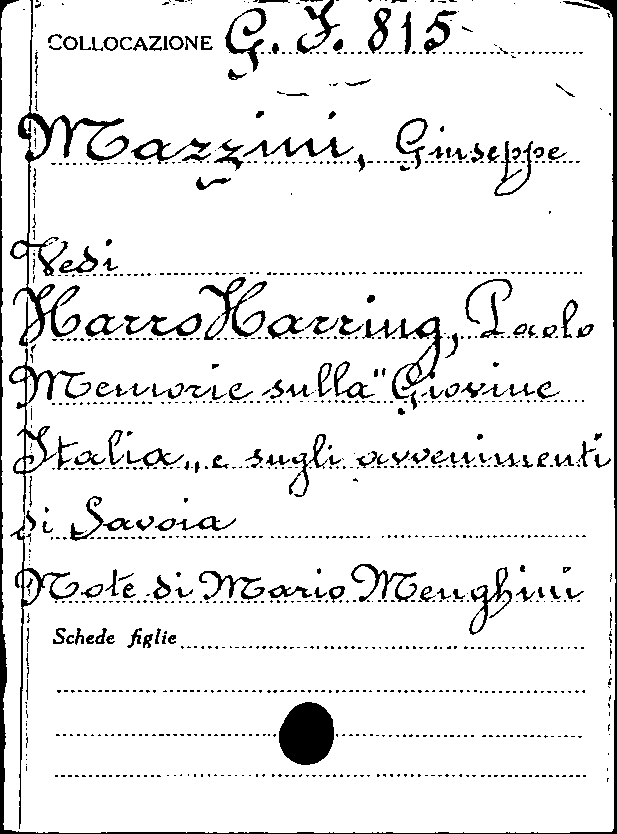 COLLOCAZIONE G. I. 815
Mazzini, Giuseppe
Vedi
Harro Harring, Paolo
Memorie sulla "Giovine
Italia„ e sugli avvenimenti
di Savoia
Note di Mario Menghini
Schede figlie